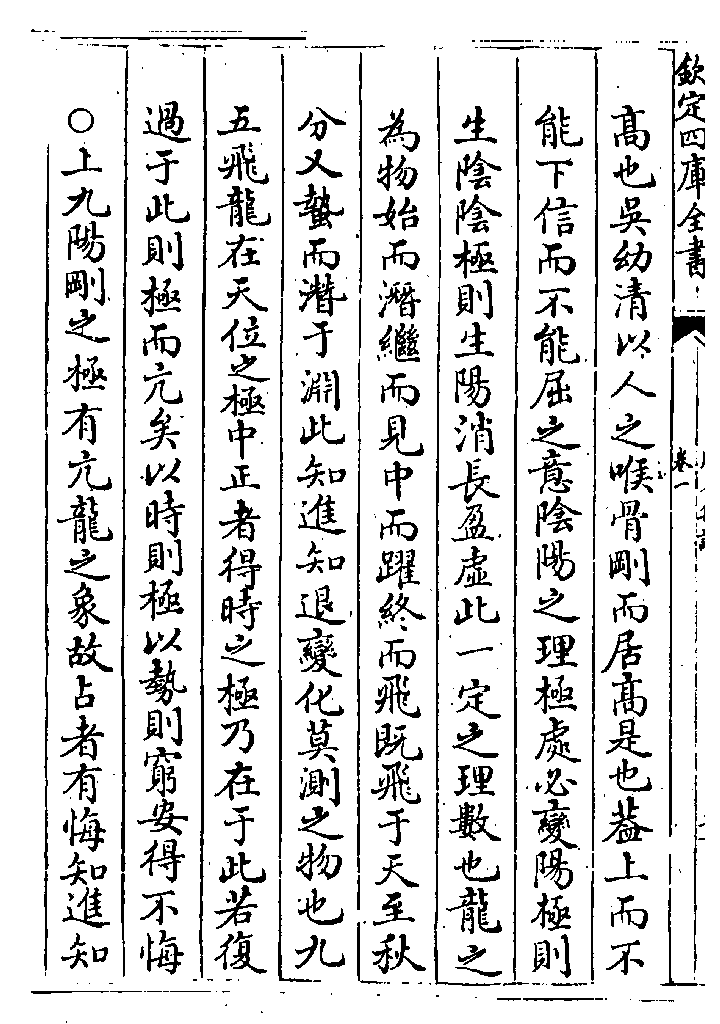 欽定四庫全書
卷一
高也吳幼清以人之喉骨剛而居高是也葢上而不
能下信而不能屈之意陰陽之理極處必變陽極則
生陰陰極則生陽消長盈虛此一定之理數也龍之
為物始而潛繼而見中而躍終而飛既飛于天至秋
分又蟄而潛于淵此知進知退變化莫測之物也九
五飛龍在天位之極中正者得時之極乃在于此若復
過于此則極而亢矣以時則極以勢則窮安得不悔
○上九陽剛之極有亢龍之象故占者有悔知進知